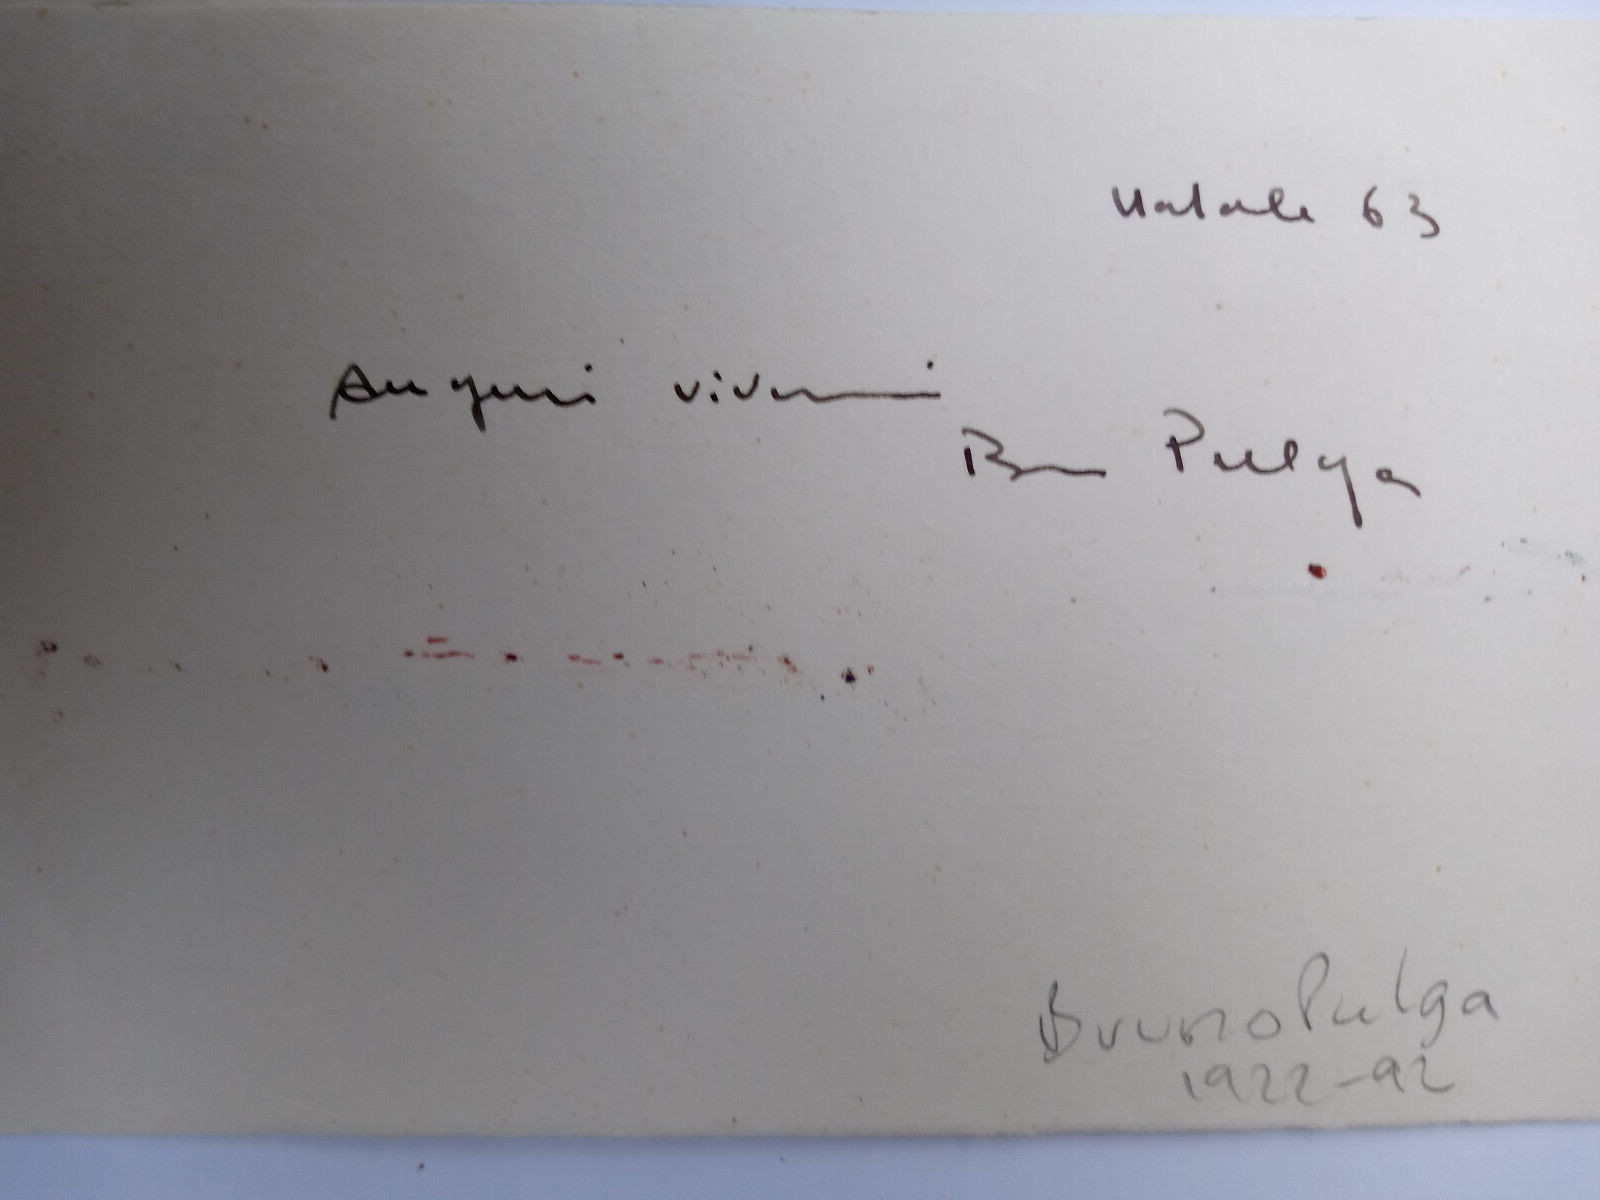 Natale 63
Auguri vivissimi
Bruno Pulga
Bruno Pulga
1922-92